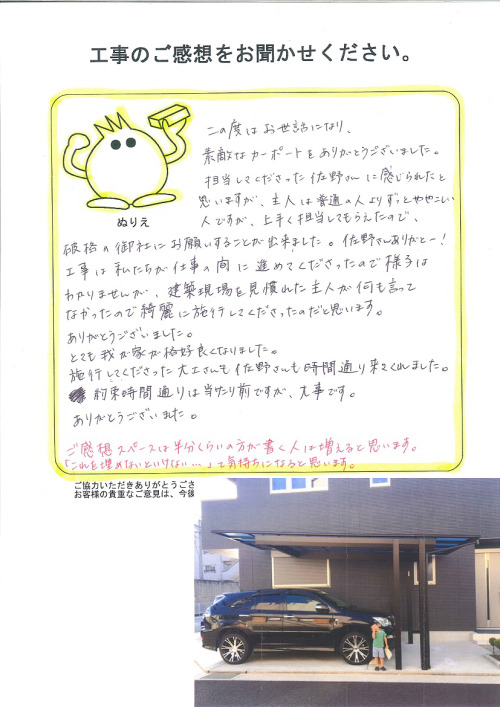 工事のご感想をお聞かせください。
この度はお世話になり、
素敵なカーポートをありがとうございました。
担当してくださった佐野さんに感じられたと
思いますが、主人は普通の人よりずっとややこしい
人ですが、上手く担当してもらえたので、
ぬりえ
破格の御社にお願いすることが出来ました。佐野さんありがとー!
工事は私たちが仕事の間に進めてくださったので様子は
わかりませんが、建築現場を見慣れた主人が何も言って
なかったので綺麗に施行してくださったのだと思います。
ありがとうございました。
とても我が家が格好良くなりました。
施行してくださった大工さんも佐野さんも時間通り来てくれました。
約束時間通りは当たり前ですが、大事です。
ありがとうございました。
ご感想スペースは半分くらいの方が書く人は増えると思います。
「これを埋めないといけない…」て気持ちになると思います。
ご協力いただきありがとうござ
お客様の貴重なご意見は、今後